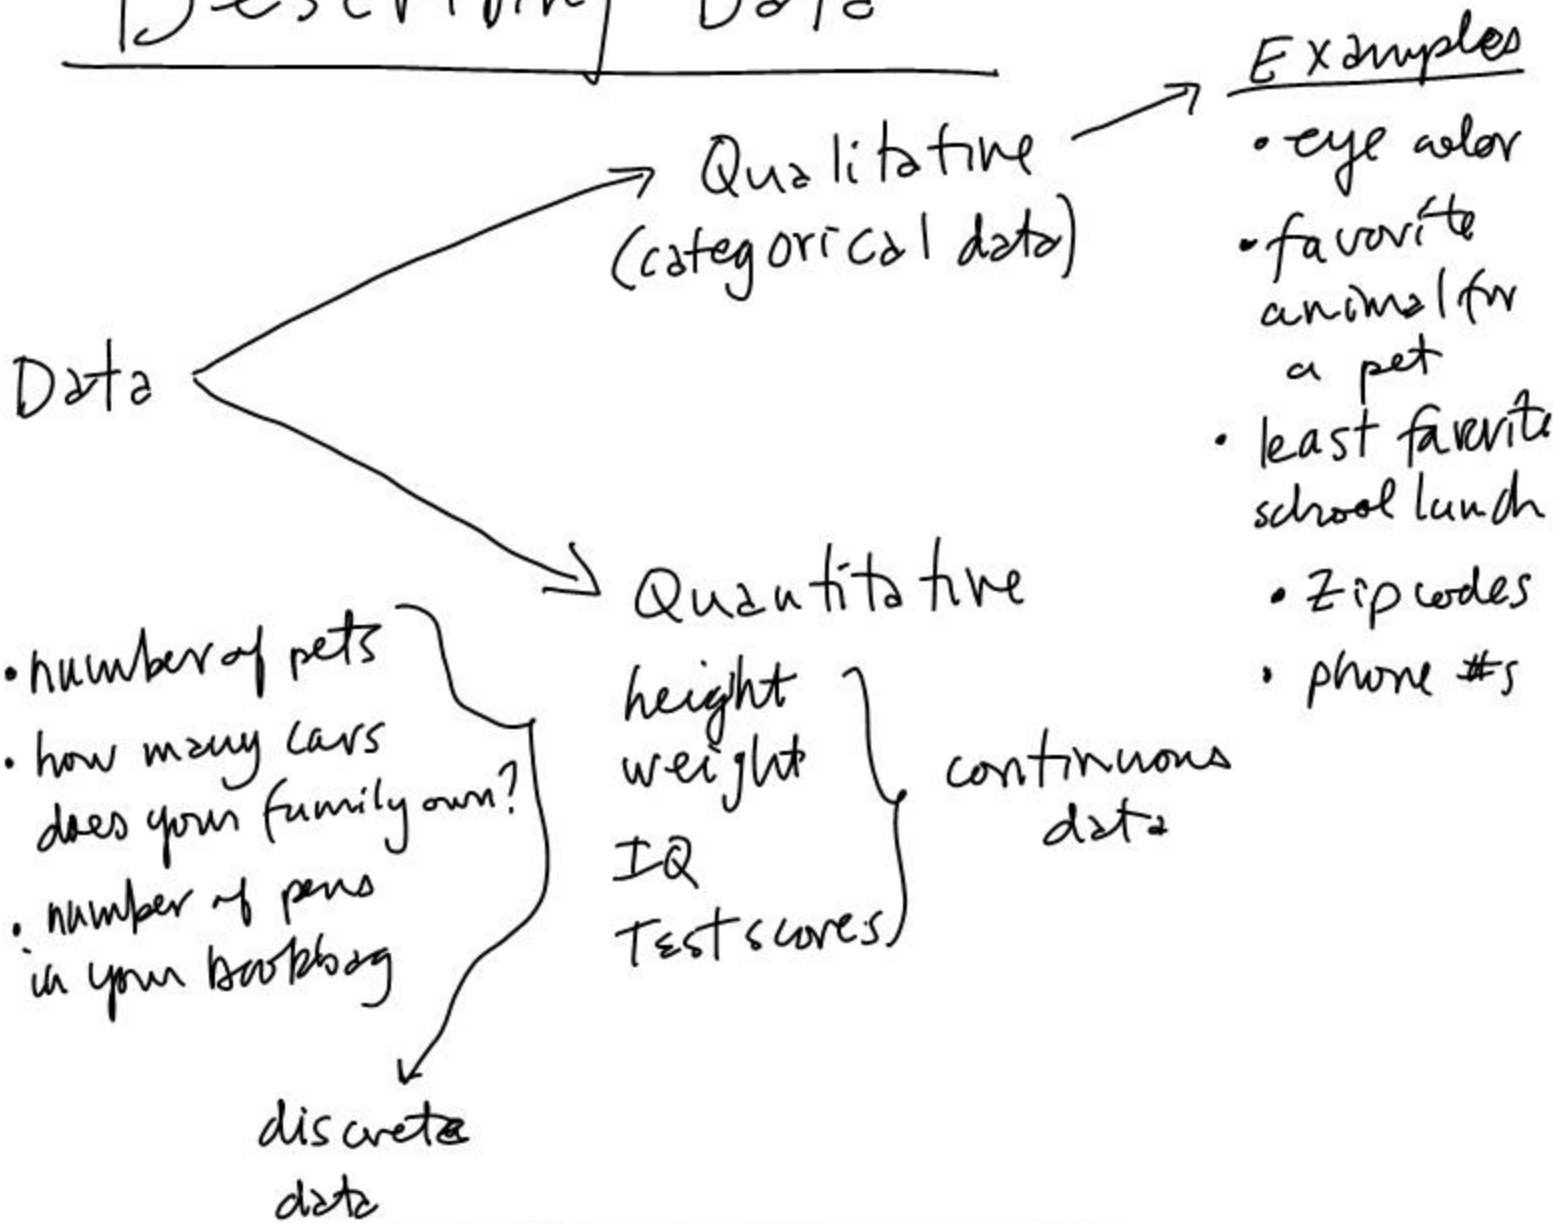 Describing Data
Examples
Qualitative
(categorical data)
• eye color
• favorite
animal for
a pet
• least favorite
school lunch
• Zip codes
• phone #s
Data
Quantitative
height
weight
IQ
Test scores
continuous
data
• number of pets
• how many cars
does your family own?
• number of pens
in your bookbag
discrete
data